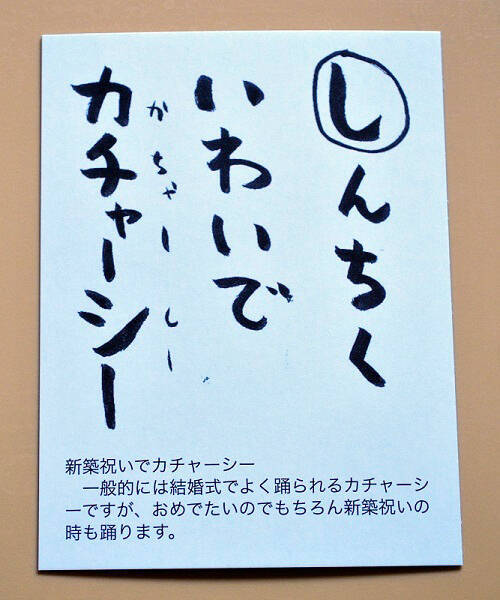 しんちく
いわいで
カチャーシー
かちゃーしー
新築祝いでカチャーシー
　一般的には結婚式でよく踊られるカチャーシ
ーですが、おめでたいのでもちろん新築祝いの
時も踊ります。